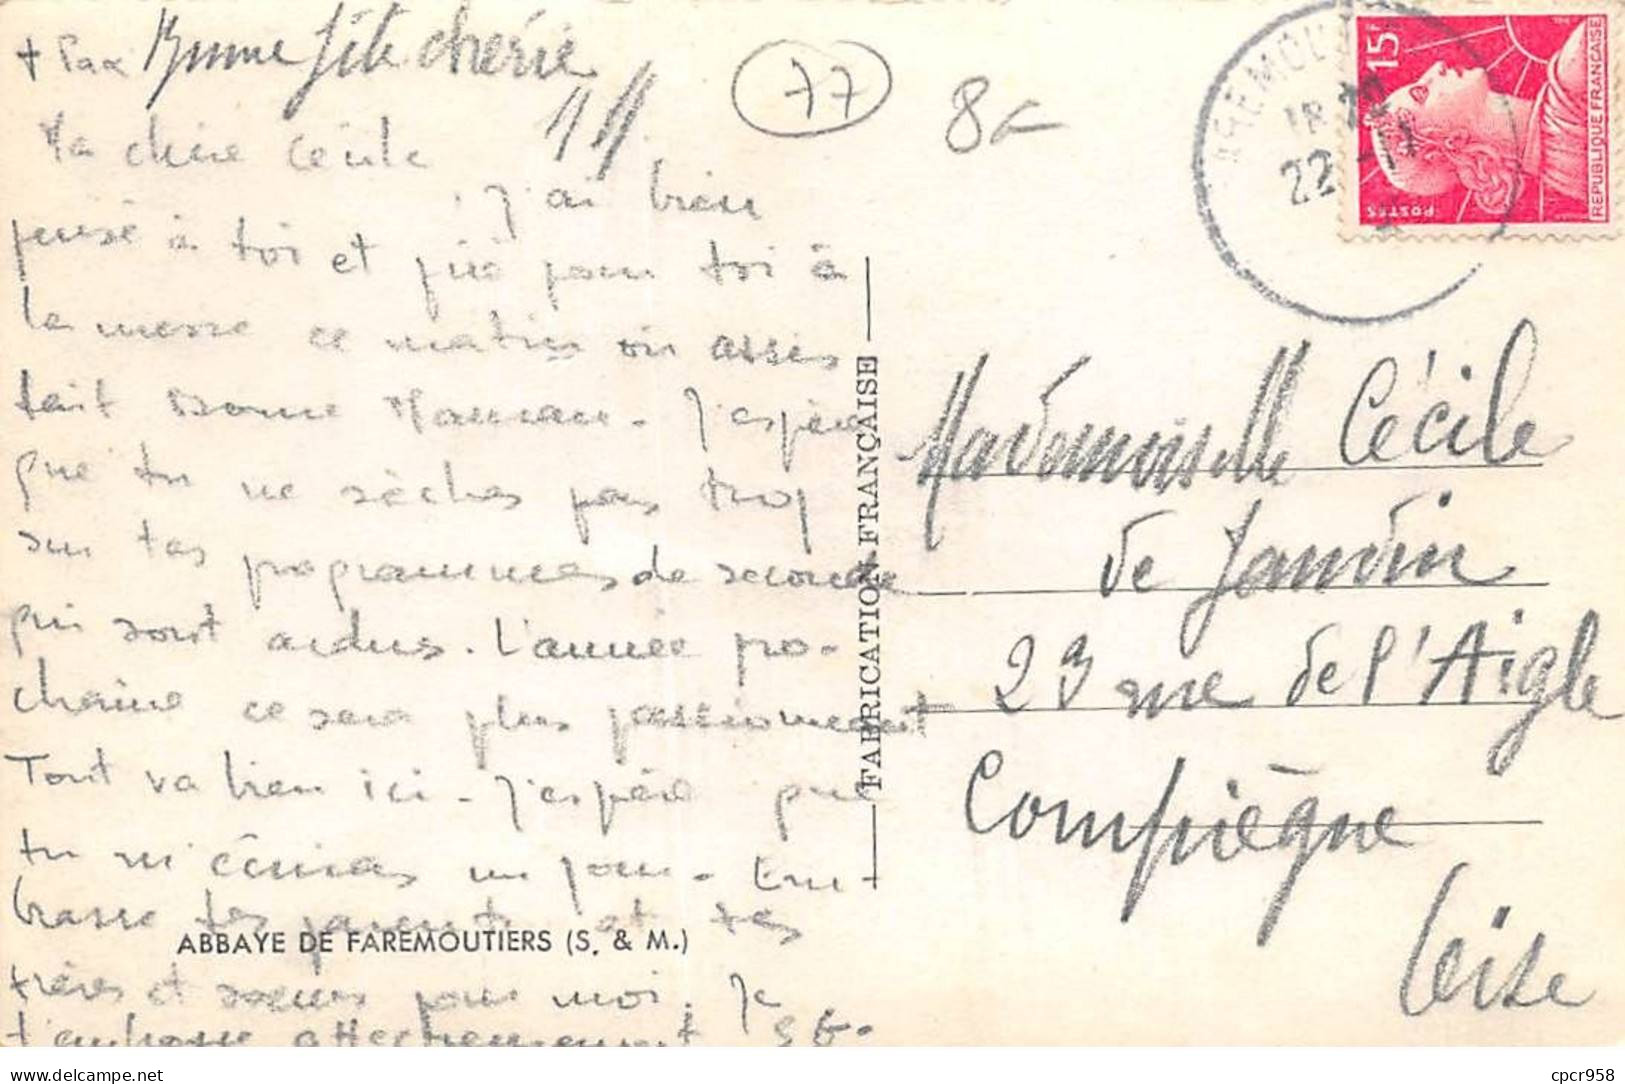 + Pax Bonne fête chérie
77
8€
Ma chère Cécile
J'ai bien
pensé à toi et prié pour toi à
la messe ce matin où assis
tait Bonne Maman. J'espère
que tu ne sèches pas trop
sur tes programmes de seconde
qui sont ardus. L'année pro-
chaine ce sera plus passionnant
Tout va bien ici. J'espère que
tu m'écriras un jour. Em-
brasse tes parents et tes
frères et soeurs pour moi. Je
t'embrasse affectueusement
ABBAYE DE FAREMOUTIERS (S. & M.)
FABRICATION FRANÇAISE
15F
POSTES
REPUBLIQUE FRANÇAISE
AREMOU
18
22 -11
Mademoiselle Cécile
de Jandin
23 rue de l'Aigle
Compiègne
Oise
cpcr958